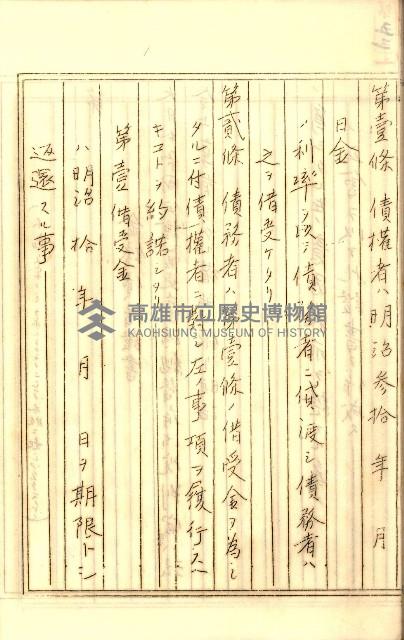 第壹條 債權者ハ明治參拾 年 月
日金
ノ利率ヲ以シ債務者ニ貸渡シ債務者ハ
之ヲ借受ケタリ
第貳條 債務者ハ第壹條ノ借受金ヲ為シ
タルニ付債權者ニ對シ左ノ事項ヲ履行スベ
キコトヲ約諾シタリ
第壹 借受金
ハ明治拾 年 月 日ヲ期限トシ
返還スル事
高雄市立歷史博物館
KAOHSIUNG MUSEUM OF HISTORY